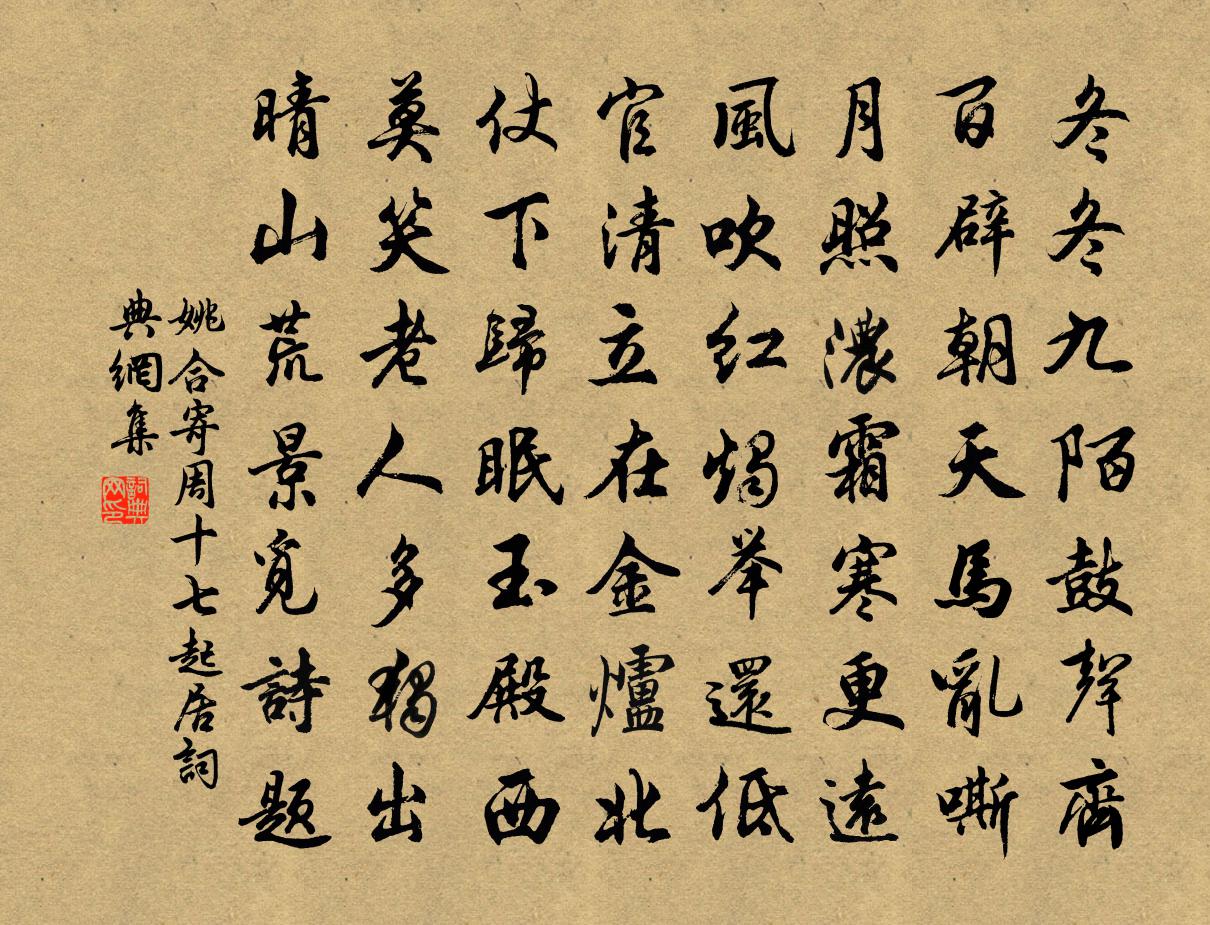 冬冬九陌鼓聲齊
百辟朝天馬亂嘶
月照濃霜寒更遠
風吹红燭举還低
官清立在金爐北
仗下歸眠玉殿西
莫笑老人多獨出
晴山荒景覓詩题
姚合寄周十七起居詞
典網集
詞典
网印